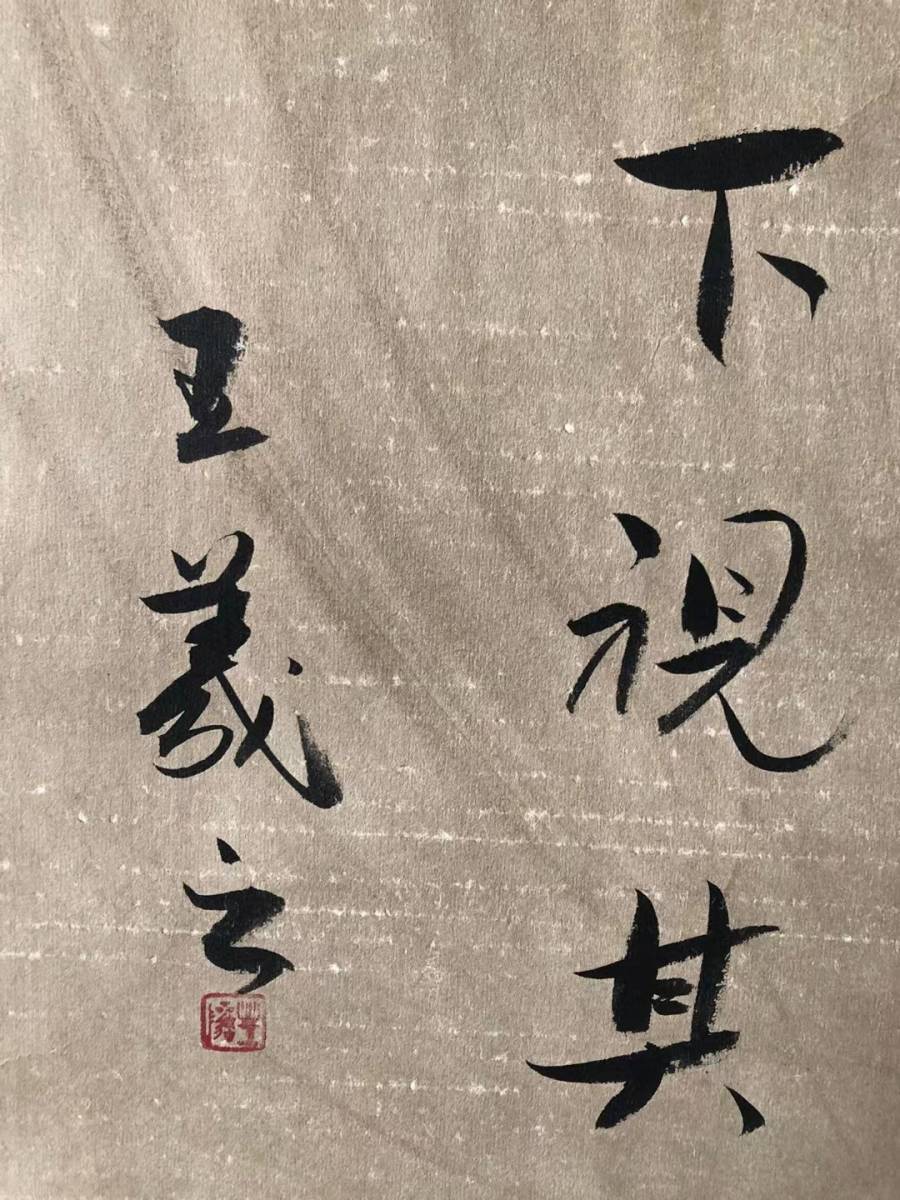 下視其
王羲之